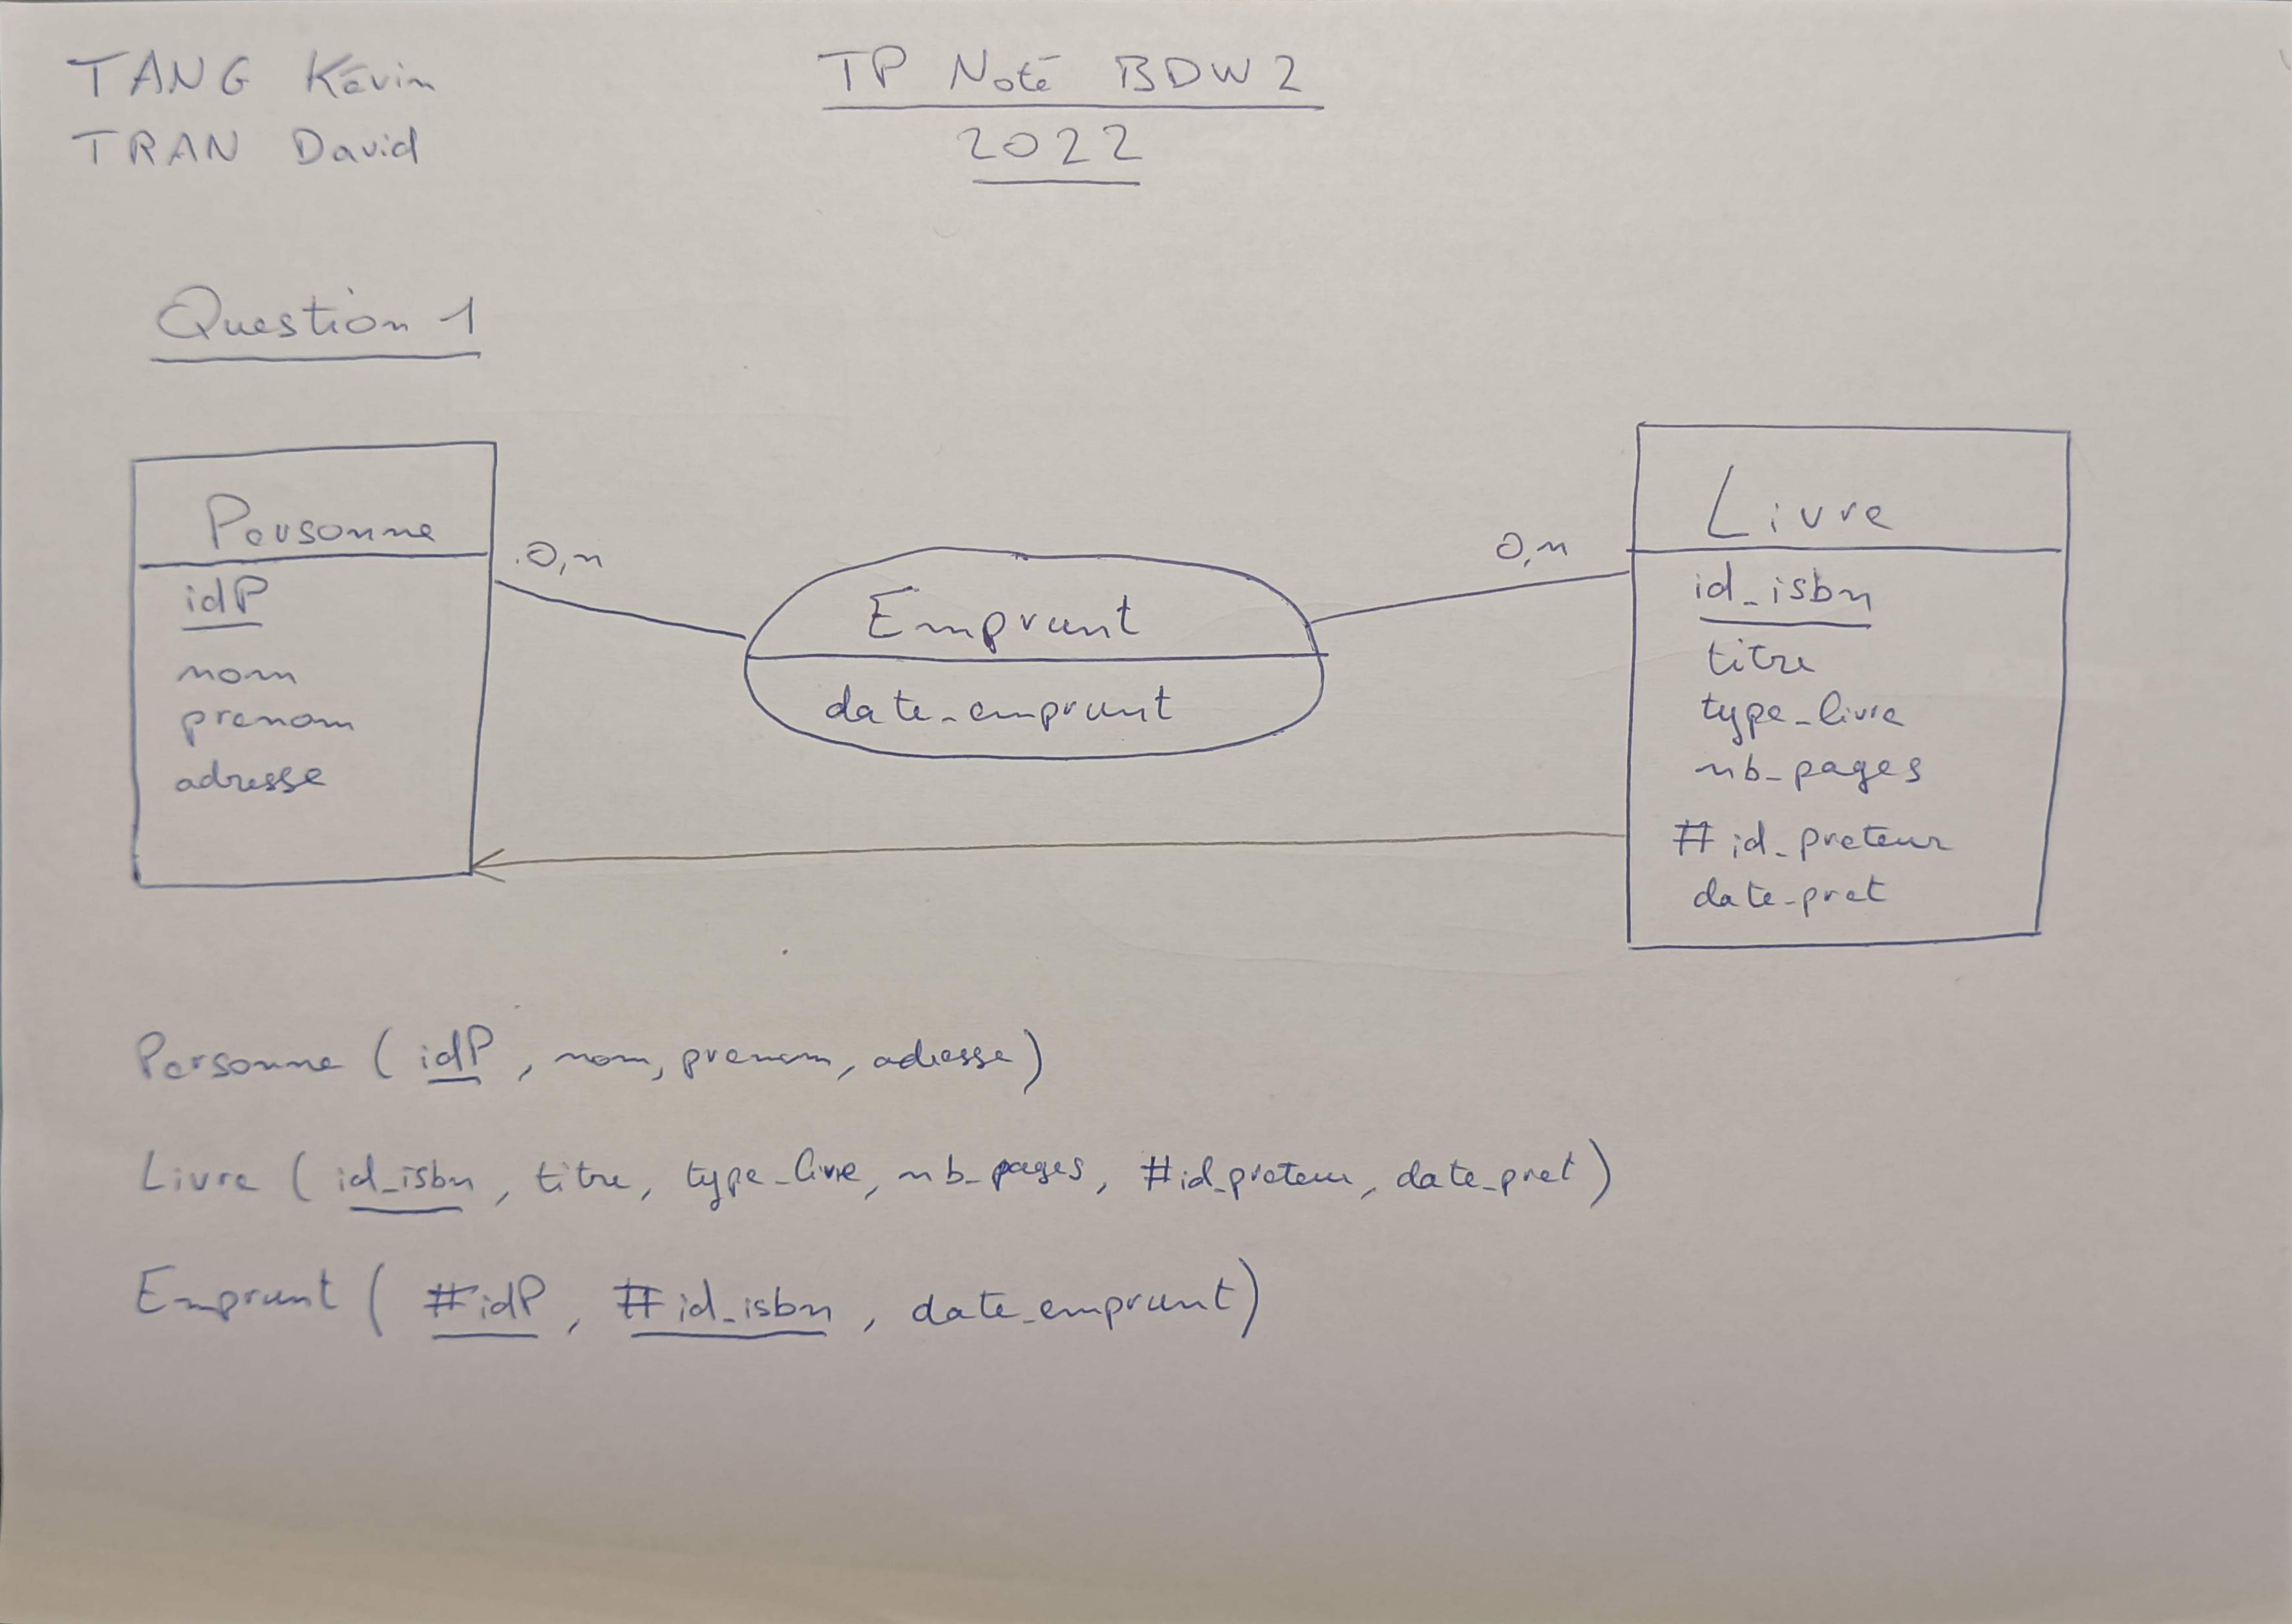 TANG Kévin
TRAN David
TP Noté BDW2
2022
Question 1
Personne
idP
nom
prenom
adresse
0,n
Emprunt
date_emprunt
0,n
Livre
id_isbn
titre
type_livre
nb_pages
#id_preteur
date_pret
Personne ( idP , nom, prenom, adresse)
Livre ( id_isbn , titre, type_livre, nb_pages, #id_preteur, date_pret)
Emprunt ( #idP , #id_isbn , date_emprunt)